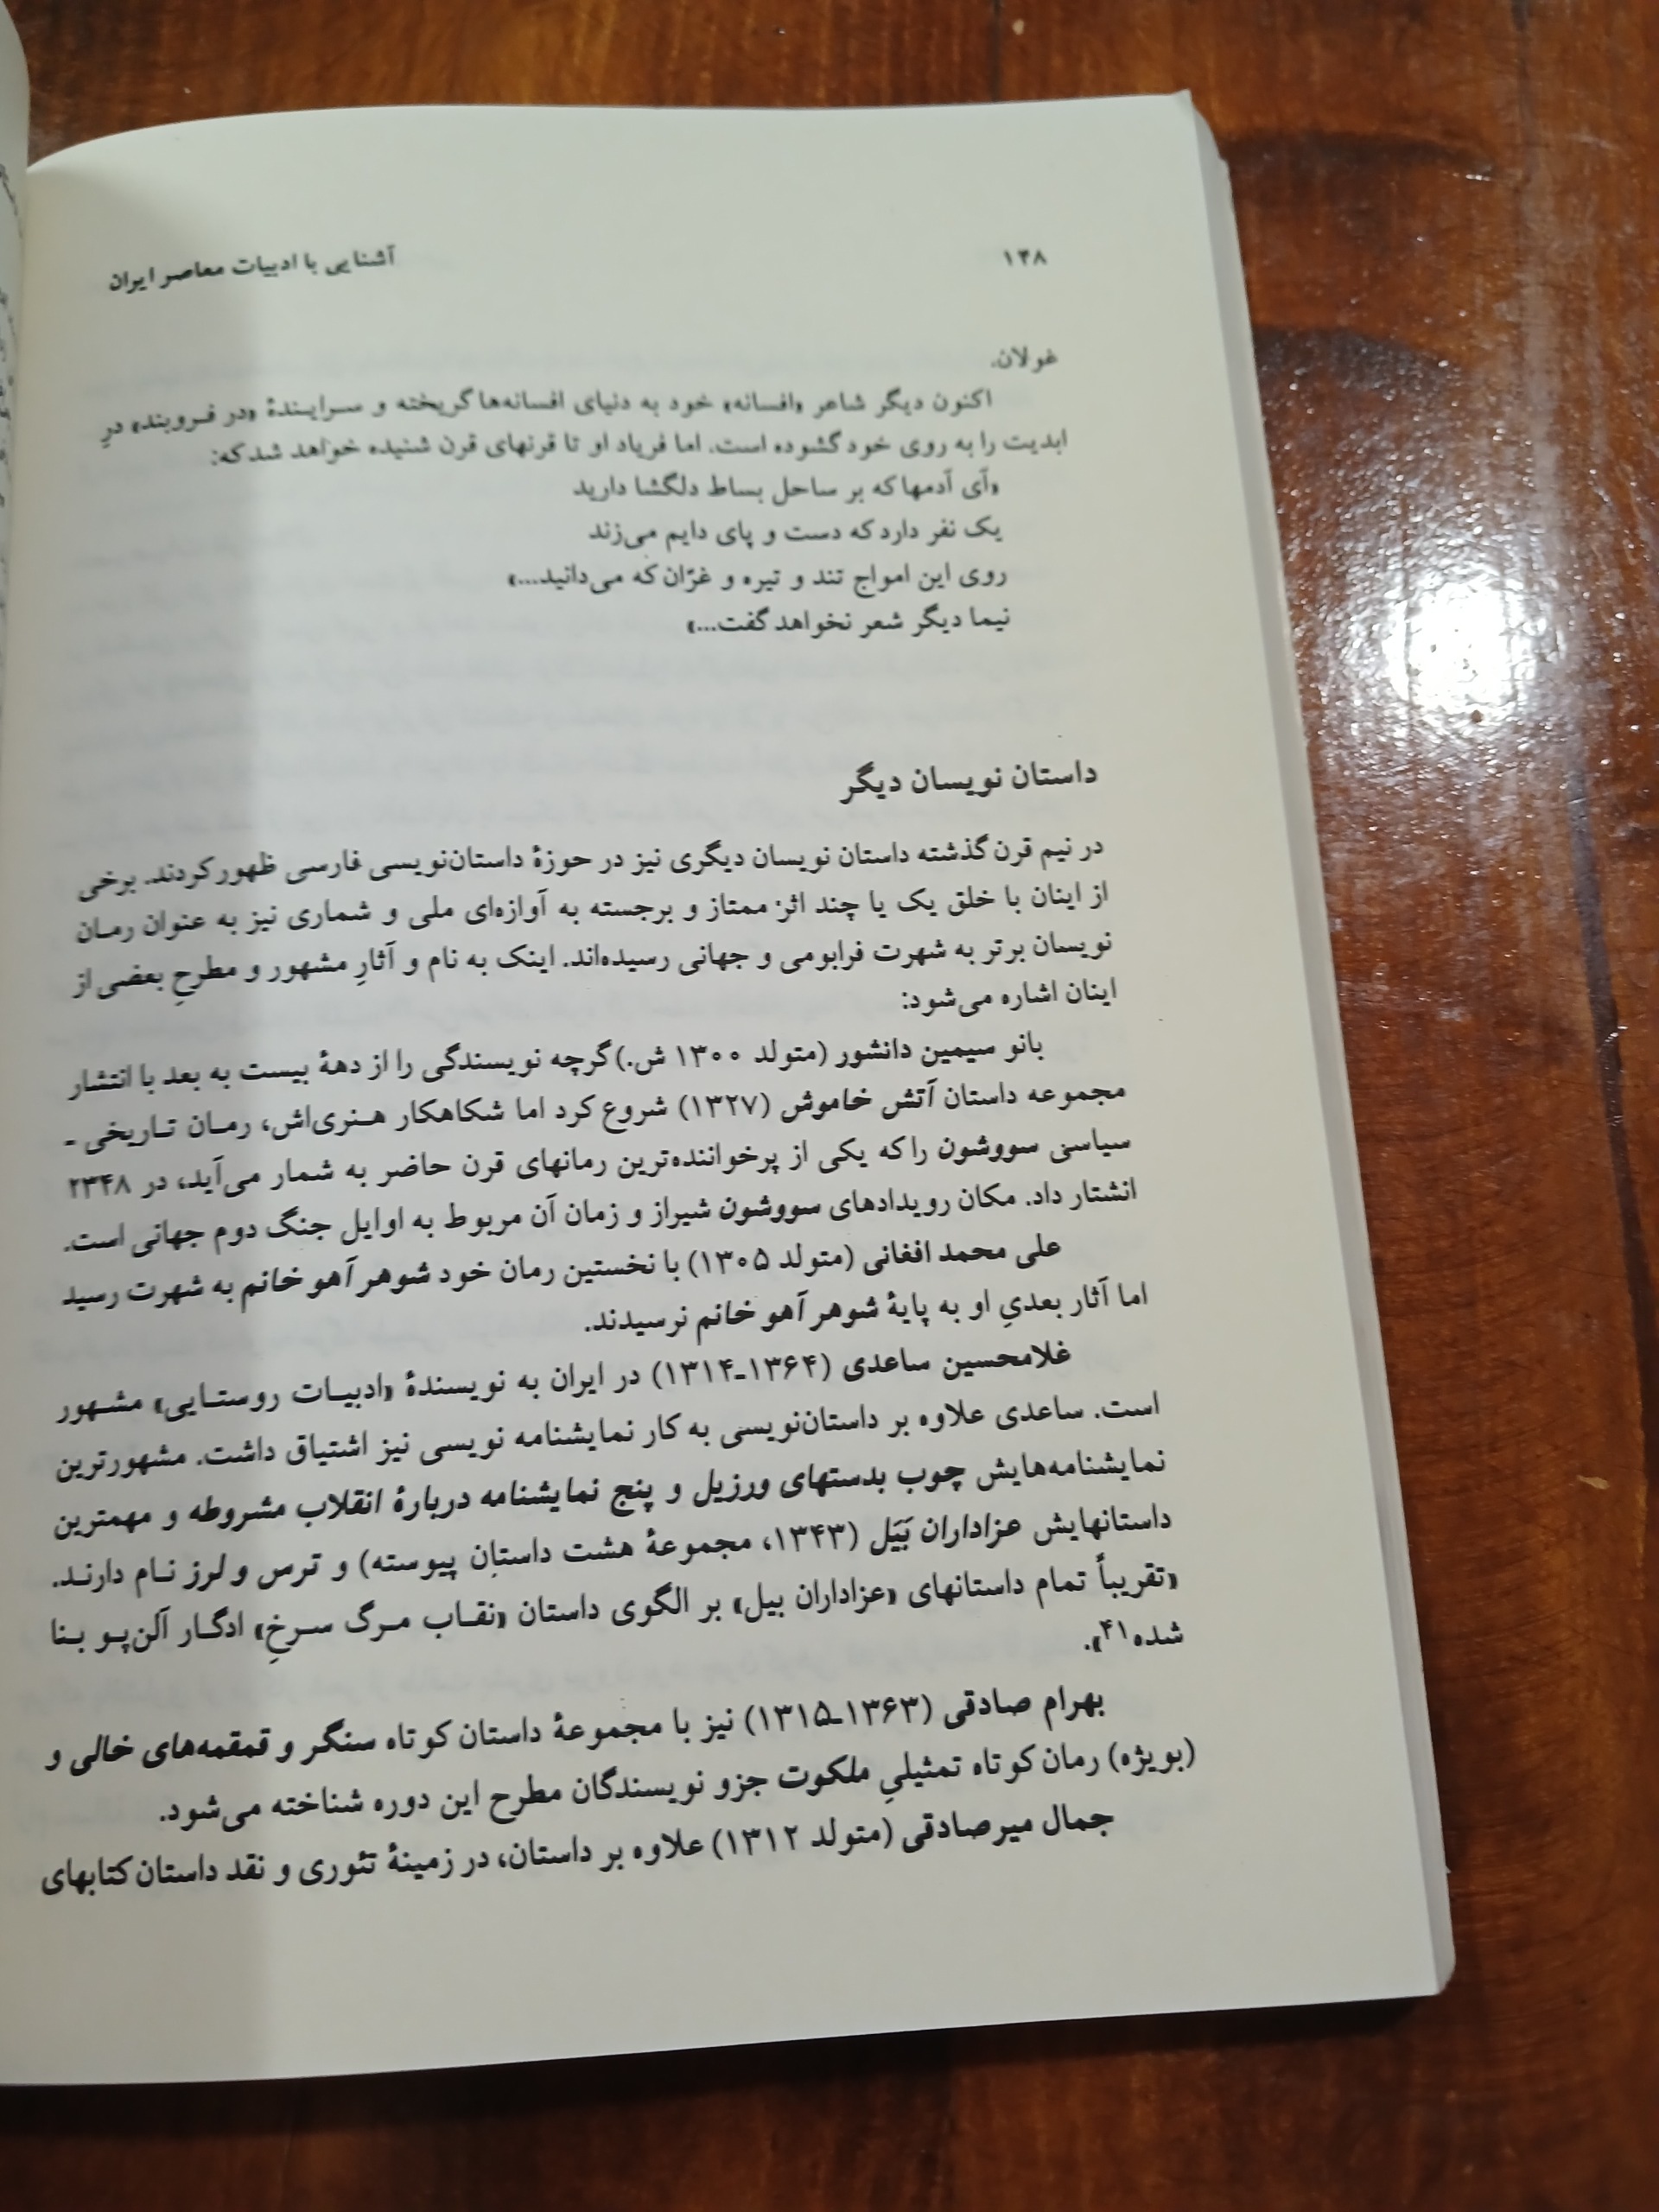 ۱۳۸
آشنایی با ادبیات معاصر ایران
غولان.
اکنون دیگر شاعر «افسانه» خود به دنیای افسانه‌ها گریخته و سرایندهٔ «در فروبند» درِ
ابدیت را به روی خود گشوده است. اما فریاد او تا قرنهای قرن شنیده خواهد شد که:
«آی آدمها که بر ساحل بساط دلگشا دارید
یک نفر دارد که دست و پای دایم می‌زند
روی این امواج تند و تیره و غرّان که می‌دانید...»
نیما دیگر شعر نخواهد گفت...»
داستان نویسان دیگر
در نیم قرن گذشته داستان نویسان دیگری نیز در حوزهٔ داستان‌نویسی فارسی ظهور کردند. برخی
از اینان با خلق یک یا چند اثر ممتاز و برجسته به آوازه‌ای ملی و شماری نیز به عنوان رمان
نویسان برتر به شهرت فرابومی و جهانی رسیده‌اند. اینک به نام و آثارِ مشهور و مطرحِ بعضی از
اینان اشاره می‌شود:
بانو سیمین دانشور (متولد ۱۳۰۰ ش.) گرچه نویسندگی را از دههٔ بیست به بعد با انتشار
مجموعه داستان آتش خاموش (۱۳۲۷) شروع کرد اما شکاهکار هنری‌اش، رمان تاریخی -
سیاسی سووشون را که یکی از پرخواننده‌ترین رمانهای قرن حاضر به شمار می‌آید، در ۲۳۴۸
انشتار داد. مکان رویدادهای سووشون شیراز و زمان آن مربوط به اوایل جنگ دوم جهانی است.
علی محمد افغانی (متولد ۱۳۰۵) با نخستین رمان خود شوهر آهو خانم به شهرت رسید
اما آثار بعدیِ او به پایهٔ شوهر آهو خانم نرسیدند.
غلامحسین ساعدی (۱۳۶۴ـ۱۳۱۴) در ایران به نویسندهٔ «ادبیات روستایی» مشهور
است. ساعدی علاوه بر داستان‌نویسی به کار نمایشنامه نویسی نیز اشتیاق داشت. مشهورترین
نمایشنامه‌هایش چوب بدستهای ورزیل و پنج نمایشنامه دربارهٔ انقلاب مشروطه و مهمترین
داستانهایش عزاداران بَیَل (۱۳۴۳، مجموعهٔ هشت داستان پیوسته) و ترس و لرز نام دارند.
«تقریباً تمام داستانهای «عزاداران بیل» بر الگوی داستان «نقاب مرگ سرخ» ادگار آلن‌پو بنا
شده۴۱».
بهرام صادقی (۱۳۶۳ـ۱۳۱۵) نیز با مجموعهٔ داستان کوتاه سنگر و قمقمه‌های خالی و
(بویژه) رمان کوتاه تمثیلیِ ملکوت جزو نویسندگان مطرح این دوره شناخته می‌شود.
جمال میرصادقی (متولد ۱۳۱۲) علاوه بر داستان، در زمینهٔ تئوری و نقد داستان کتابهای